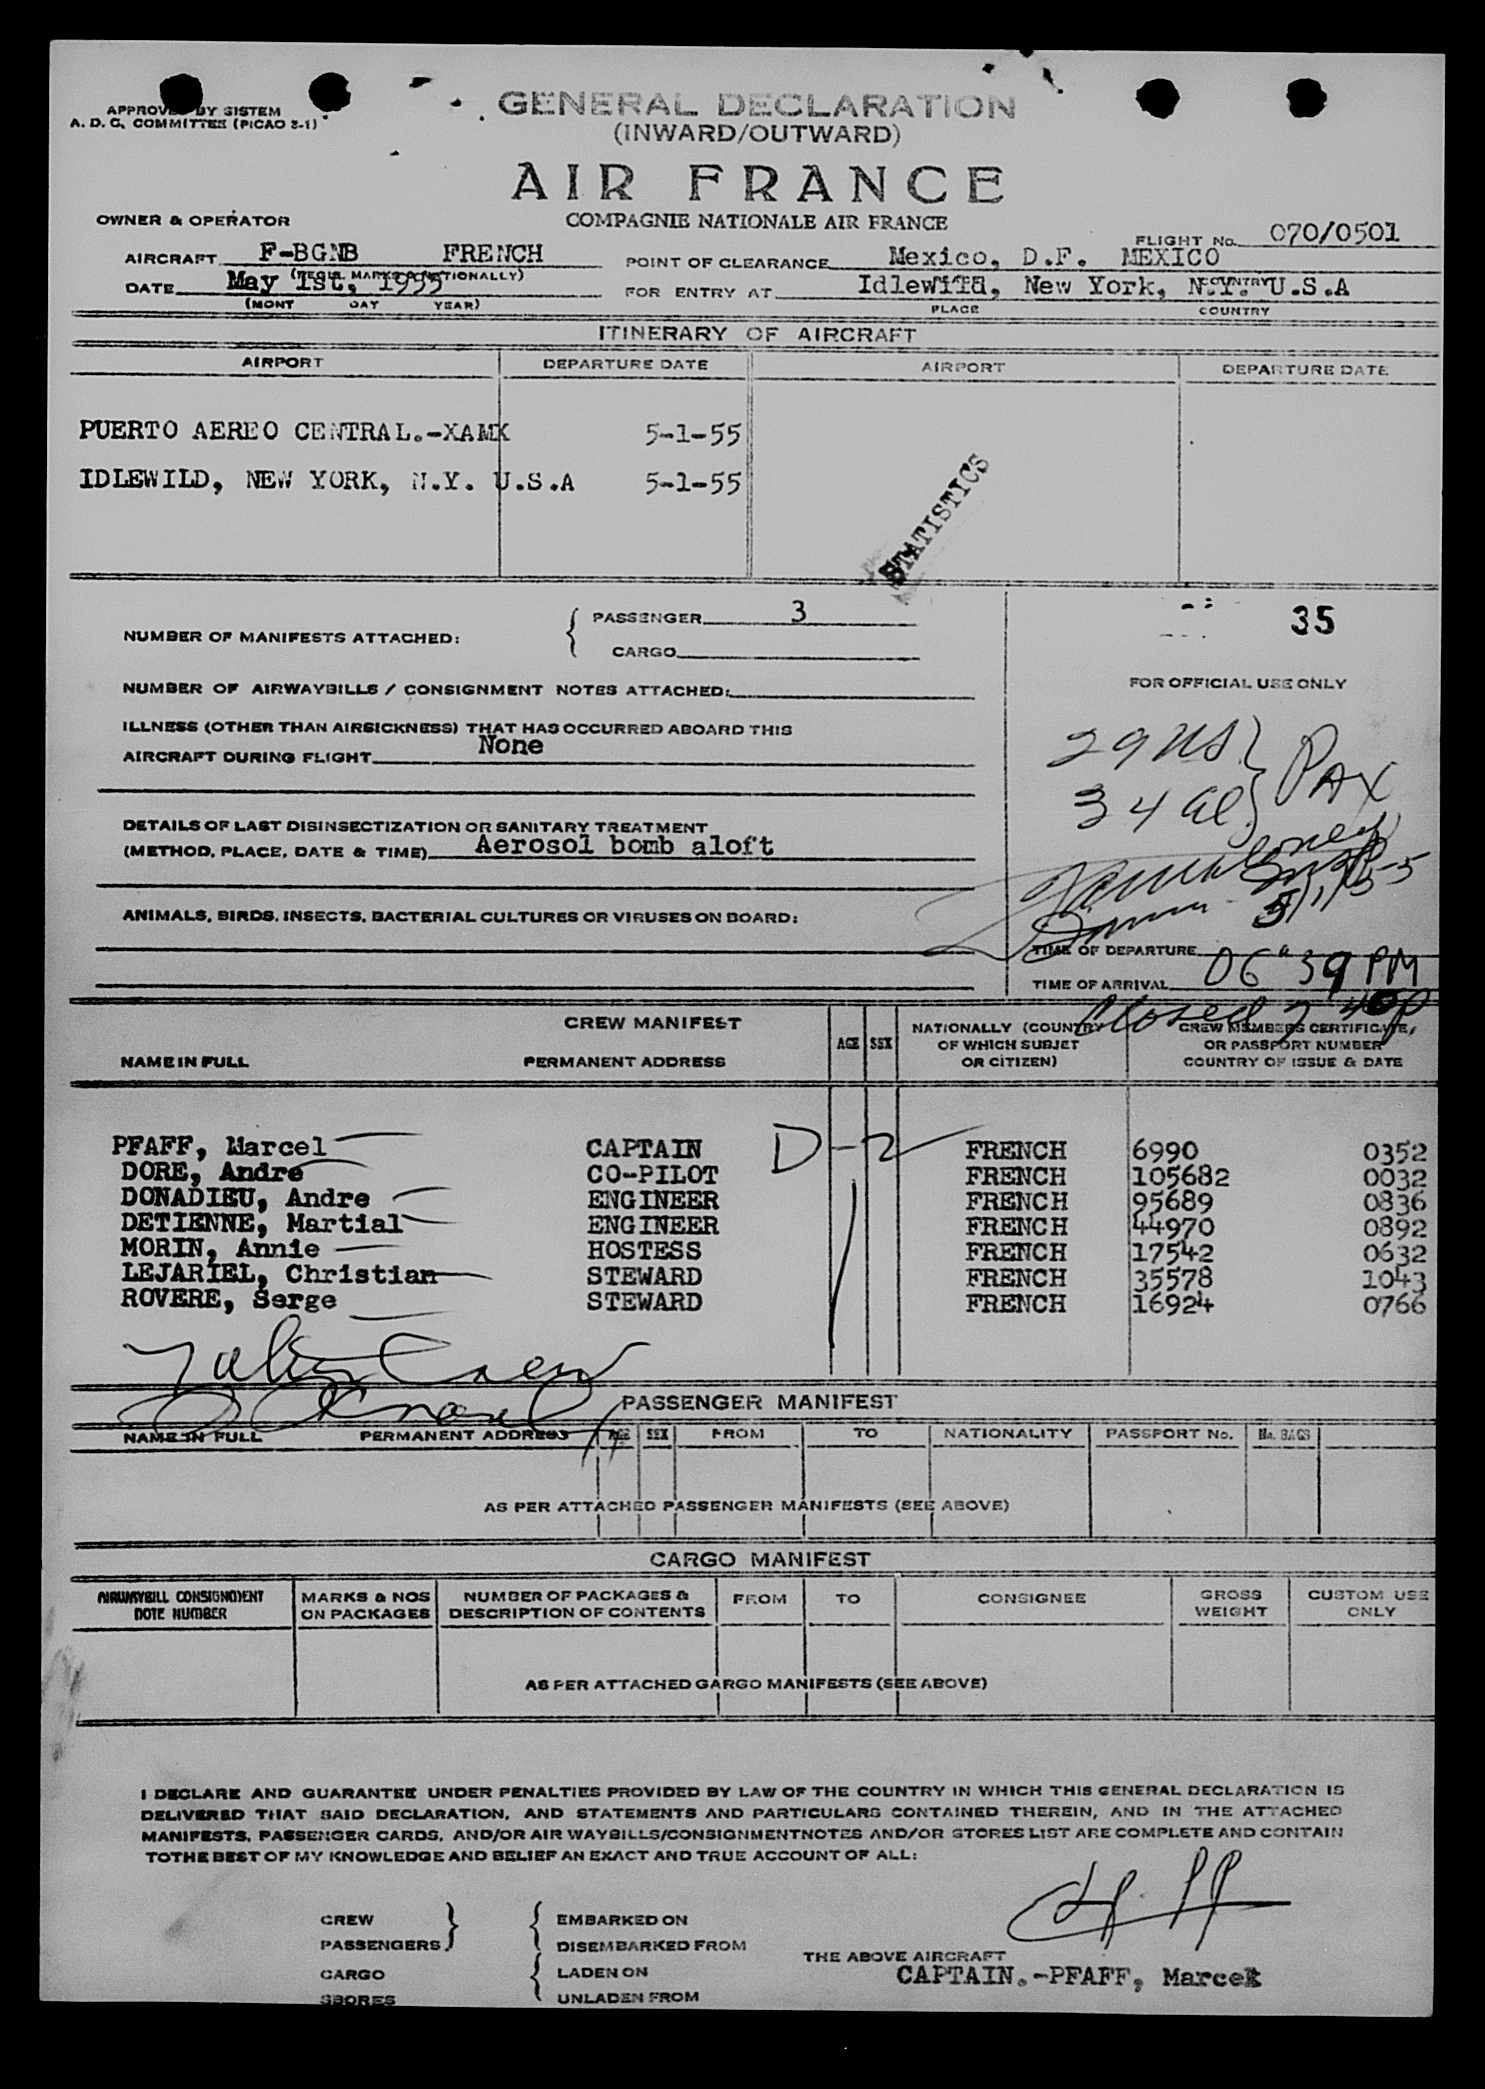 APPROVED BY SISTEM
A. D. C. COMMITTEE (PICAO 2-1)
GENERAL DECLARATION
(INWARD/OUTWARD)
AIR FRANCE
OWNER & OPERATOR
COMPAGNIE NATIONALE AIR FRANCE
FLIGHT No. 070/0501
AIRCRAFT F-BGNB FRENCH
POINT OF CLEARANCE Mexico, D.F. MEXICO
(REGIS. MARKS & NATIONALLY)
COUNTRY
DATE May 1st, 1955
FOR ENTRY AT Idlewild, New York, N.Y. U.S.A
(MONT DAY YEAR)
PLACE COUNTRY
ITINERARY OF AIRCRAFT
AIRPORT DEPARTURE DATE AIRPORT DEPARTURE DATE
PUERTO AEREO CENTRAL.-XAMX 5-1-55
IDLEWILD, NEW YORK, N.Y. U.S.A 5-1-55
STATISTICS
NUMBER OF MANIFESTS ATTACHED:
PASSENGER 3
CARGO
35
FOR OFFICIAL USE ONLY
NUMBER OF AIRWAYBILLS / CONSIGNMENT NOTES ATTACHED:
ILLNESS (OTHER THAN AIRSICKNESS) THAT HAS OCCURRED ABOARD THIS
AIRCRAFT DURING FLIGHT None
29 US
34 al
PAX
DETAILS OF LAST DISINSECTIZATION OR SANITARY TREATMENT
(METHOD, PLACE, DATE & TIME) Aerosol bomb aloft
5/1/55
ANIMALS, BIRDS, INSECTS, BACTERIAL CULTURES OR VIRUSES ON BOARD:
TIME OF DEPARTURE
TIME OF ARRIVAL 06 39 PM
Closed 7 40p
CREW MANIFEST
NAME IN FULL PERMANENT ADDRESS AGE SEX
NATIONALLY (COUNTRY
OF WHICH SUBJET
OR CITIZEN)
CREW MEMBERS CERTIFICATE,
OR PASSPORT NUMBER
COUNTRY OF ISSUE & DATE
PFAFF, Marcel CAPTAIN D-2 FRENCH 6990 0352
DORE, Andre CO-PILOT FRENCH 105682 0032
DONADIEU, Andre ENGINEER FRENCH 95689 0836
DETIENNE, Martial ENGINEER FRENCH 44970 0892
MORIN, Annie HOSTESS FRENCH 17542 0632
LEJARIEL, Christian STEWARD FRENCH 35578 1043
ROVERE, Serge STEWARD FRENCH 16924 0766
PASSENGER MANIFEST
NAME IN FULL PERMANENT ADDRESS AGE SEX FROM TO NATIONALITY PASSPORT No. No. BAGS
AS PER ATTACHED PASSENGER MANIFESTS (SEE ABOVE)
CARGO MANIFEST
AIRWAYBILL CONSIGNMENT
NOTE NUMBER
MARKS & NOS
ON PACKAGES
NUMBER OF PACKAGES &
DESCRIPTION OF CONTENTS
FROM TO CONSIGNEE
GROSS
WEIGHT
CUSTOM USE
ONLY
AS PER ATTACHED CARGO MANIFESTS (SEE ABOVE)
I DECLARE AND GUARANTEE UNDER PENALTIES PROVIDED BY LAW OF THE COUNTRY IN WHICH THIS GENERAL DECLARATION IS
DELIVERED THAT SAID DECLARATION, AND STATEMENTS AND PARTICULARS CONTAINED THEREIN, AND IN THE ATTACHED
MANIFESTS, PASSENGER CARDS, AND/OR AIR WAYBILLS/CONSIGNMENTNOTES AND/OR STORES LIST ARE COMPLETE AND CONTAIN
TOTHE BEST OF MY KNOWLEDGE AND BELIEF AN EXACT AND TRUE ACCOUNT OF ALL:
CREW
PASSENGERS
CARGO
SBORES
EMBARKED ON
DISEMBARKED FROM
LADEN ON
UNLADEN FROM
THE ABOVE AIRCRAFT
CAPTAIN.-PFAFF, Marcel